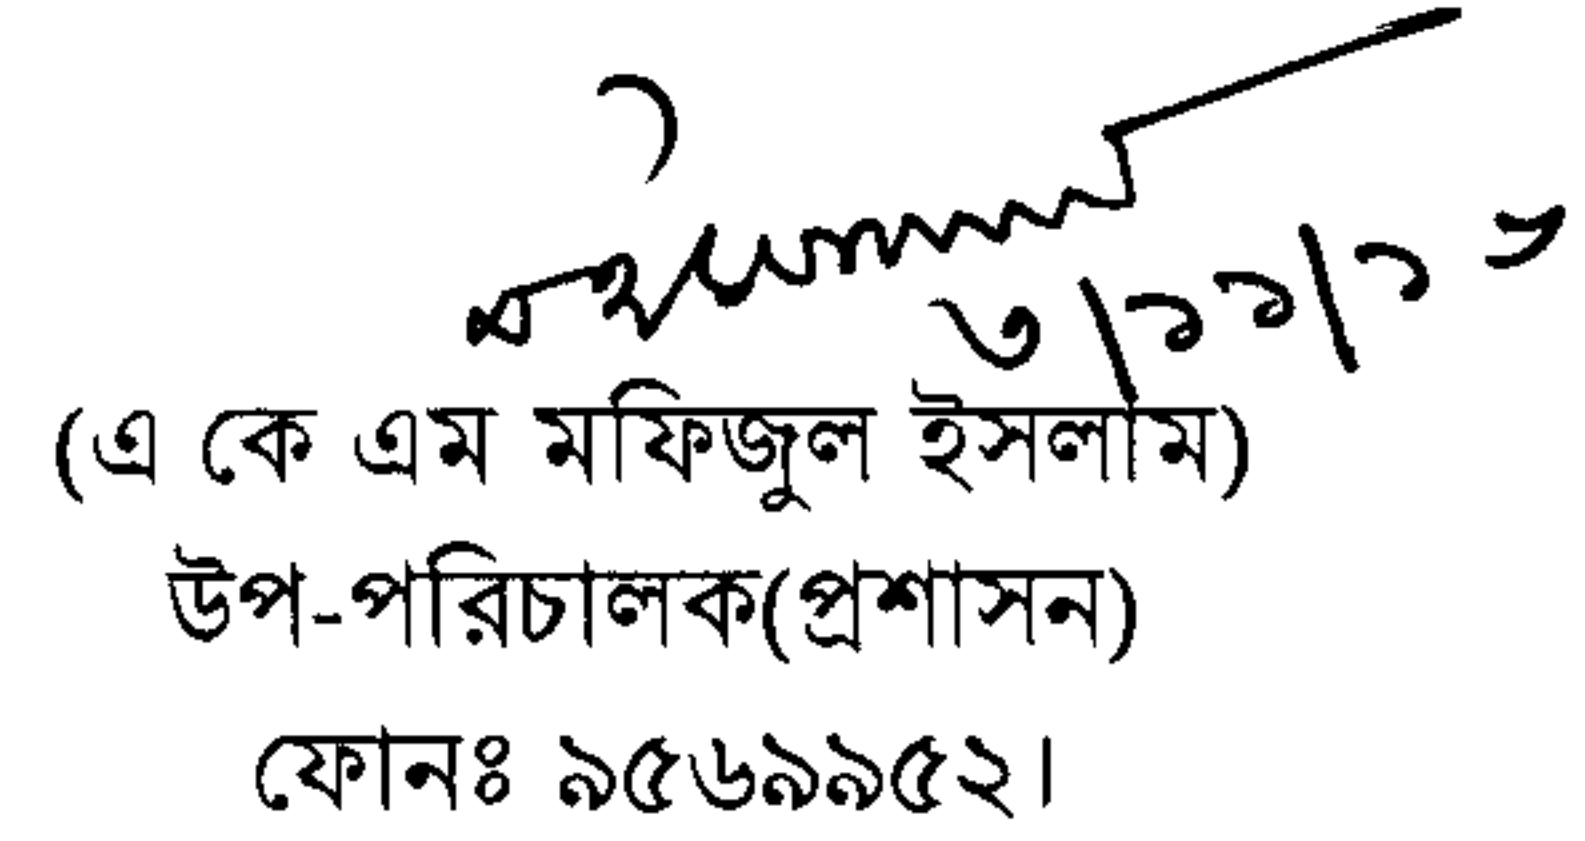 ৩/১১/১৯
(এ কে এম মফিজুল ইসলাম)
উপ-পরিচালক(প্রশাসন)
ফোনঃ ৯৫৬৯৯৫২।